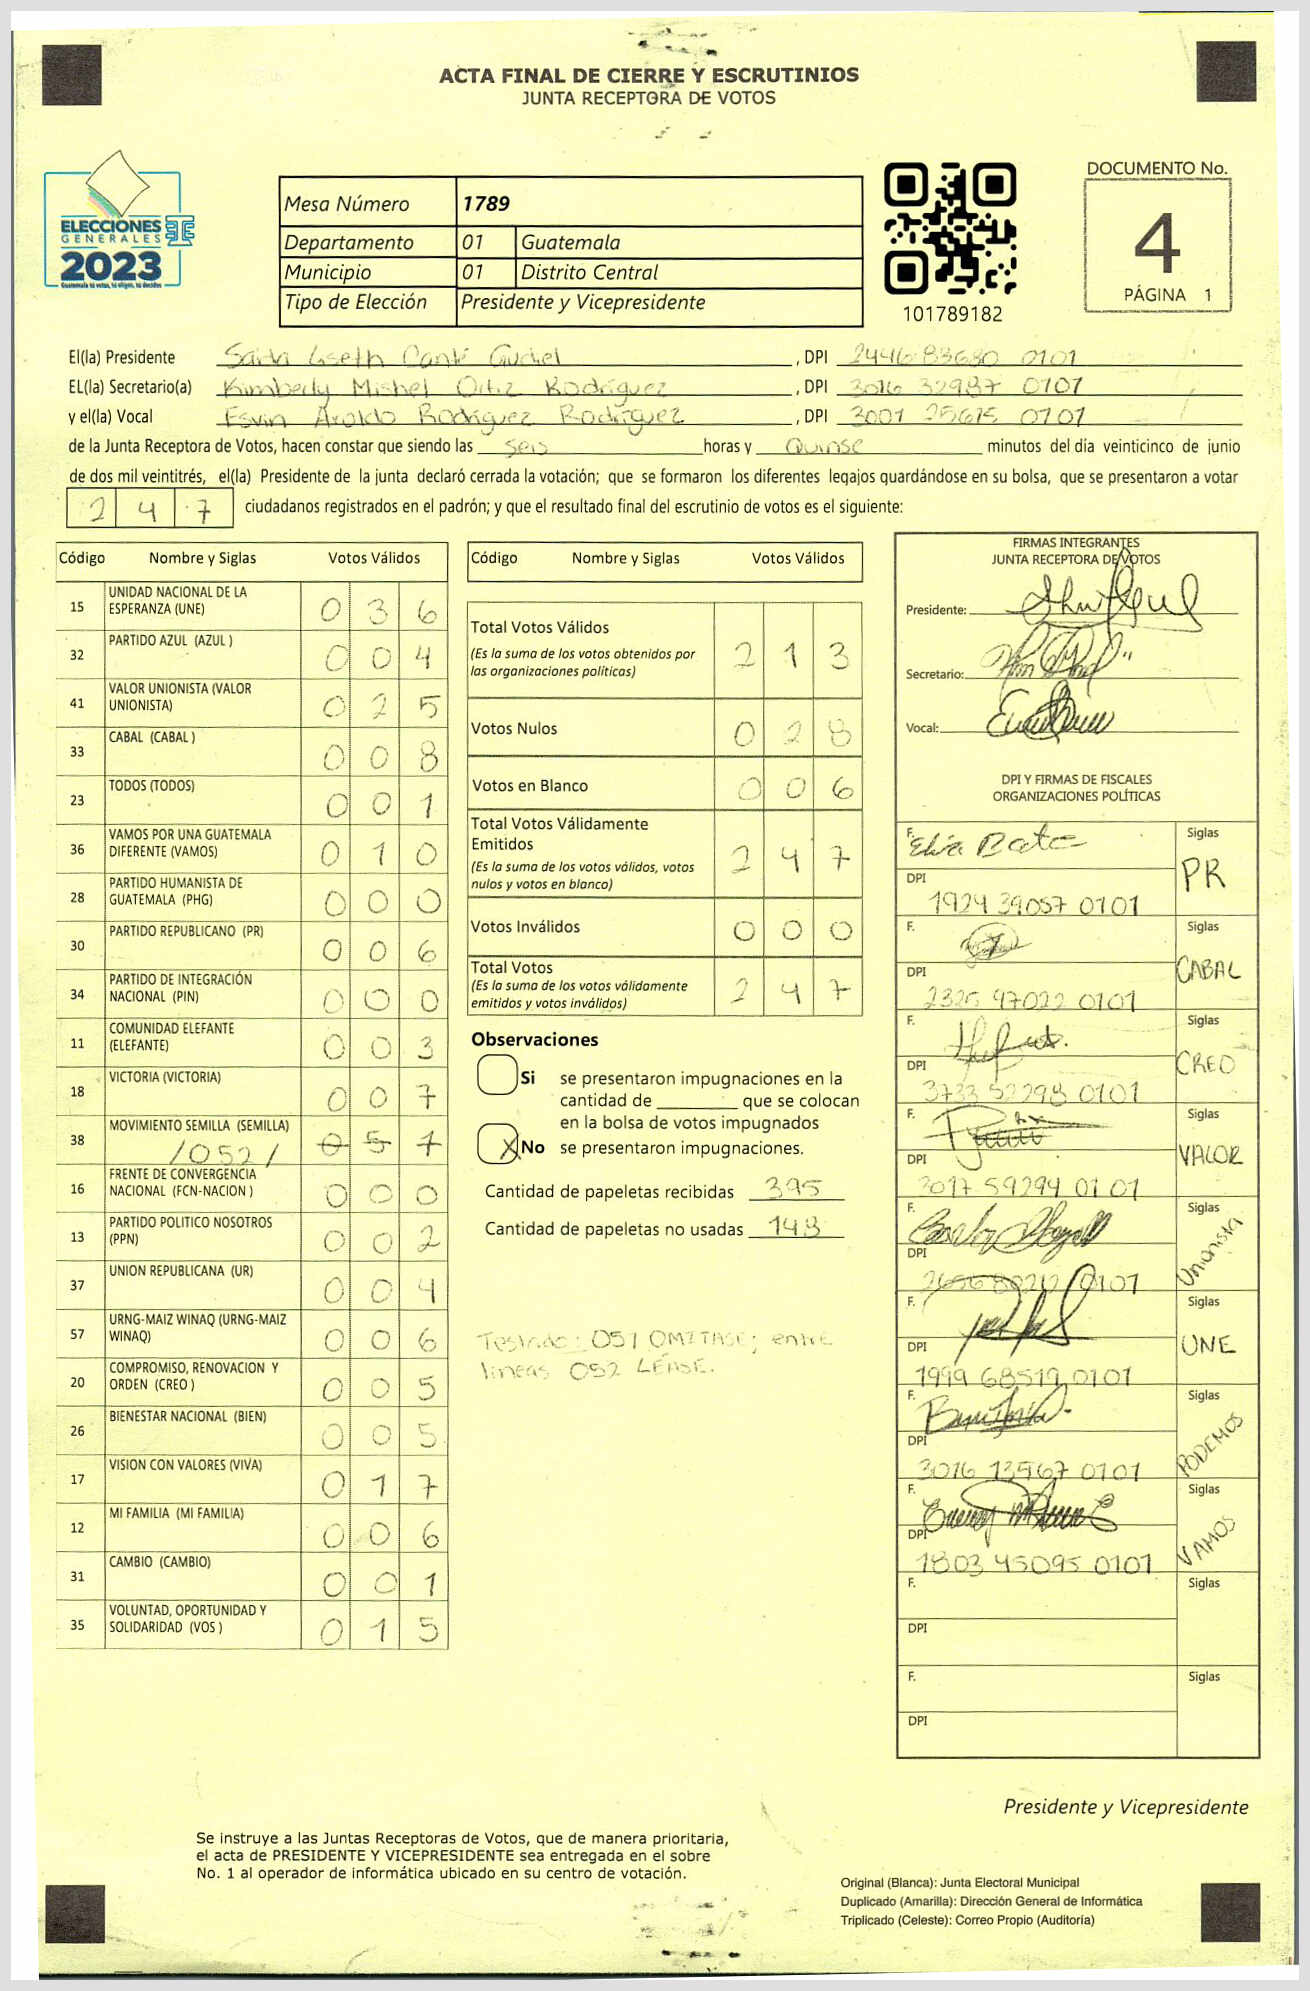 ACTA FINAL DE CIERRE Y ESCRUTINIOS
JUNTA RECEPTORA DE VOTOS
ELECCIONES
GENERALES
2023
Guatemala tú votas, tú eliges, tú decides
Mesa Número 1789
Departamento 01 Guatemala
Municipio 01 Distrito Central
Tipo de Elección Presidente y Vicepresidente
101789182
DOCUMENTO No.
4
PÁGINA 1
El(la) Presidente , DPI 2446 83680 0101
EL(la) Secretario(a) Kimberly Mishel Ortiz Rodríguez , DPI 3016 32987 0101
y el(la) Vocal Esvin Aroldo Rodríguez Rodríguez , DPI 3001 25675 0101
de la Junta Receptora de Votos, hacen constar que siendo las seis horas y Quinse minutos del día veinticinco de junio
de dos mil veintitrés, el(la) Presidente de la junta declaró cerrada la votación; que se formaron los diferentes legajos quardándose en su bolsa, que se presentaron a votar
2 4 7 ciudadanos registrados en el padrón; y que el resultado final del escrutinio de votos es el siguiente:
Código Nombre y Siglas Votos Válidos
15 UNIDAD NACIONAL DE LA ESPERANZA (UNE) 0 3 6
32 PARTIDO AZUL (AZUL ) 0 0 4
41 VALOR UNIONISTA (VALOR UNIONISTA) 0 2 5
33 CABAL (CABAL ) 0 0 8
23 TODOS (TODOS) 0 0 1
36 VAMOS POR UNA GUATEMALA DIFERENTE (VAMOS) 0 1 0
28 PARTIDO HUMANISTA DE GUATEMALA (PHG) 0 0 0
30 PARTIDO REPUBLICANO (PR) 0 0 6
34 PARTIDO DE INTEGRACIÓN NACIONAL (PIN) 0 0 0
11 COMUNIDAD ELEFANTE (ELEFANTE) 0 0 3
18 VICTORIA (VICTORIA) 0 0 7
38 MOVIMIENTO SEMILLA (SEMILLA) 0 5 1
/052/
16 FRENTE DE CONVERGENCIA NACIONAL (FCN-NACION ) 0 0 0
13 PARTIDO POLITICO NOSOTROS (PPN) 0 0 2
37 UNION REPUBLICANA (UR) 0 0 4
57 URNG-MAIZ WINAQ (URNG-MAIZ WINAQ) 0 0 6
20 COMPROMISO, RENOVACION Y ORDEN (CREO ) 0 0 5
26 BIENESTAR NACIONAL (BIEN) 0 0 5
17 VISION CON VALORES (VIVA) 0 1 7
12 MI FAMILIA (MI FAMILIA) 0 0 6
31 CAMBIO (CAMBIO) 0 0 1
35 VOLUNTAD, OPORTUNIDAD Y SOLIDARIDAD (VOS ) 0 1 5
Código Nombre y Siglas Votos Válidos
Total Votos Válidos 2 1 3
(Es la suma de los votos obtenidos por
las organizaciones políticas)
Votos Nulos 0 2 8
Votos en Blanco 0 0 6
Total Votos Válidamente
Emitidos 2 4 7
(Es la suma de los votos válidos, votos
nulos y votos en blanco)
Votos Inválidos 0 0 0
Total Votos
(Es la suma de los votos válidamente
emitidos y votos inválidos) 2 4 7
Observaciones
Si se presentaron impugnaciones en la
cantidad de ________ que se colocan
en la bolsa de votos impugnados
X No se presentaron impugnaciones.
Cantidad de papeletas recibidas 395
Cantidad de papeletas no usadas 148
Testado: 051 OMITASE; entre
lineas 052 LÉASE.
FIRMAS INTEGRANTES
JUNTA RECEPTORA DE VOTOS
Presidente:
Secretario:
Vocal:
DPI Y FIRMAS DE FISCALES
ORGANIZACIONES POLÍTICAS
F. Siglas
PR
DPI
1924 39057 0101
F. Siglas
CABAL
DPI
2325 47022 0101
F. Siglas
CREO
DPI
3733 52298 0101
F. Siglas
VALOR
DPI
3017 59294 0101
F. Siglas
Unionista
DPI
0101
F. Siglas
UNE
DPI
1999 68519 0101
F. Siglas
PODEMOS
DPI
3016 13567 0101
F. Siglas
VAMOS
DPI
1803 45095 0101
F. Siglas
DPI
F. Siglas
DPI
Presidente y Vicepresidente
Se instruye a las Juntas Receptoras de Votos, que de manera prioritaria,
el acta de PRESIDENTE Y VICEPRESIDENTE sea entregada en el sobre
No. 1 al operador de informática ubicado en su centro de votación.
Original (Blanca): Junta Electoral Municipal
Duplicado (Amarilla): Dirección General de Informática
Triplicado (Celeste): Correo Propio (Auditoría)